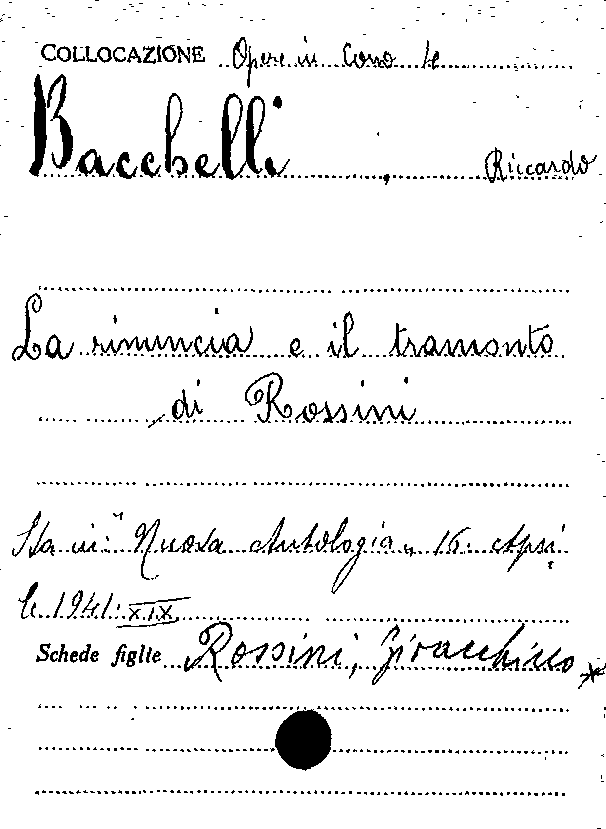 COLLOCAZIONE Opere in Corso te
Bacchelli, Riccardo
La rinuncia e il tramonto
di Rossini
Sta in: "Nuova Antologia„ 16. Apri
le 1941. XIX
Schede figlie Rossini, Gioacchino *